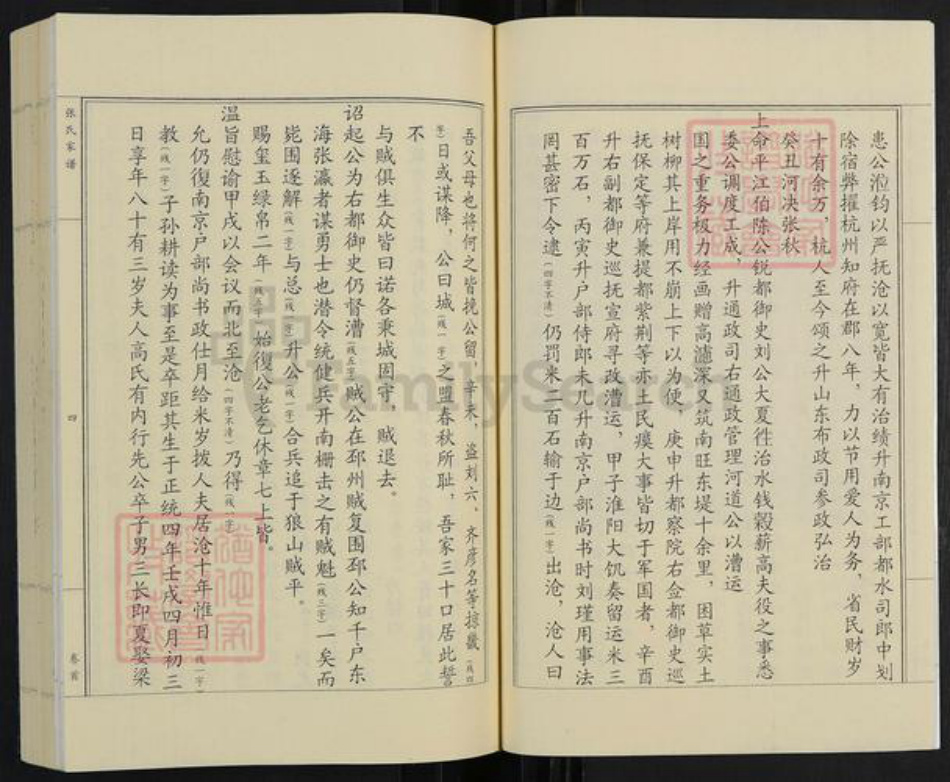 患公涖钧以严抚沧以宽皆大有治绩升南京工部都水司郎中划
除宿弊擢杭州知府在郡八年，力以节用爱人为务，省民财岁
十有余万，杭人至今颂之升山东布政司参政弘治
癸丑河决张秋
上命平江伯陈公锐都御史刘公大夏往治水钱穀薪高夫役之事悉
委公调度工成，升通政司右通政管理河道公以漕运
国之重务极力经画赠高濾深又筑南旺东堤十余里，囷草实土
树柳其上岸用不崩上下以为便，庚申升都察院右佥都御史巡
抚保定等府兼提都紫荆等亦土民瘼大事皆切于军国者，辛酉
升右副都御史巡抚宣府寻改漕运，甲子淮阳大饥奏留运米三
百万石，丙寅升户部侍郎未几升南京户部尚书时刘瑾用事法
罔甚密下令逮（四字不清）仍罚米二百石输于边（残一字）出沧，沧人曰
吾父母也将何之皆挽公留，辛未，盗刘六、齐彦名等掠畿（残四
字）日或谋降，公曰城（残一字）之盟春秋所耻，吾家三十口居此誓
不
与贼俱生众皆曰诺各秉城固守，贼退去。
诏起公为右都御史仍督漕（残五字）贼公在邳州贼复围邳公知千户东
海张瀛者谋勇士也潜令统健兵开南栅击之有贼魁（残三字）一矣而
毙围逐解（残一字）与总（残一字）升公（残一字）合兵追于狼山贼平。
赐玺玉绿帛二年（残五字）始復公老乞休章七上皆。
温旨慰谕甲戌以会议而北至沧（四字不清）乃得（残一字）
允仍復南京户部尚书政仕月给米岁拨人夫居沧十年惟日（残一字）
教（残一字）子孙耕读为事至是卒距其生于正统四年壬戌四月初三
日享年八十有三岁夫人高氏有内行先公卒子男三长即夏娶梁
张氏家谱
四
卷首
FamilySearch